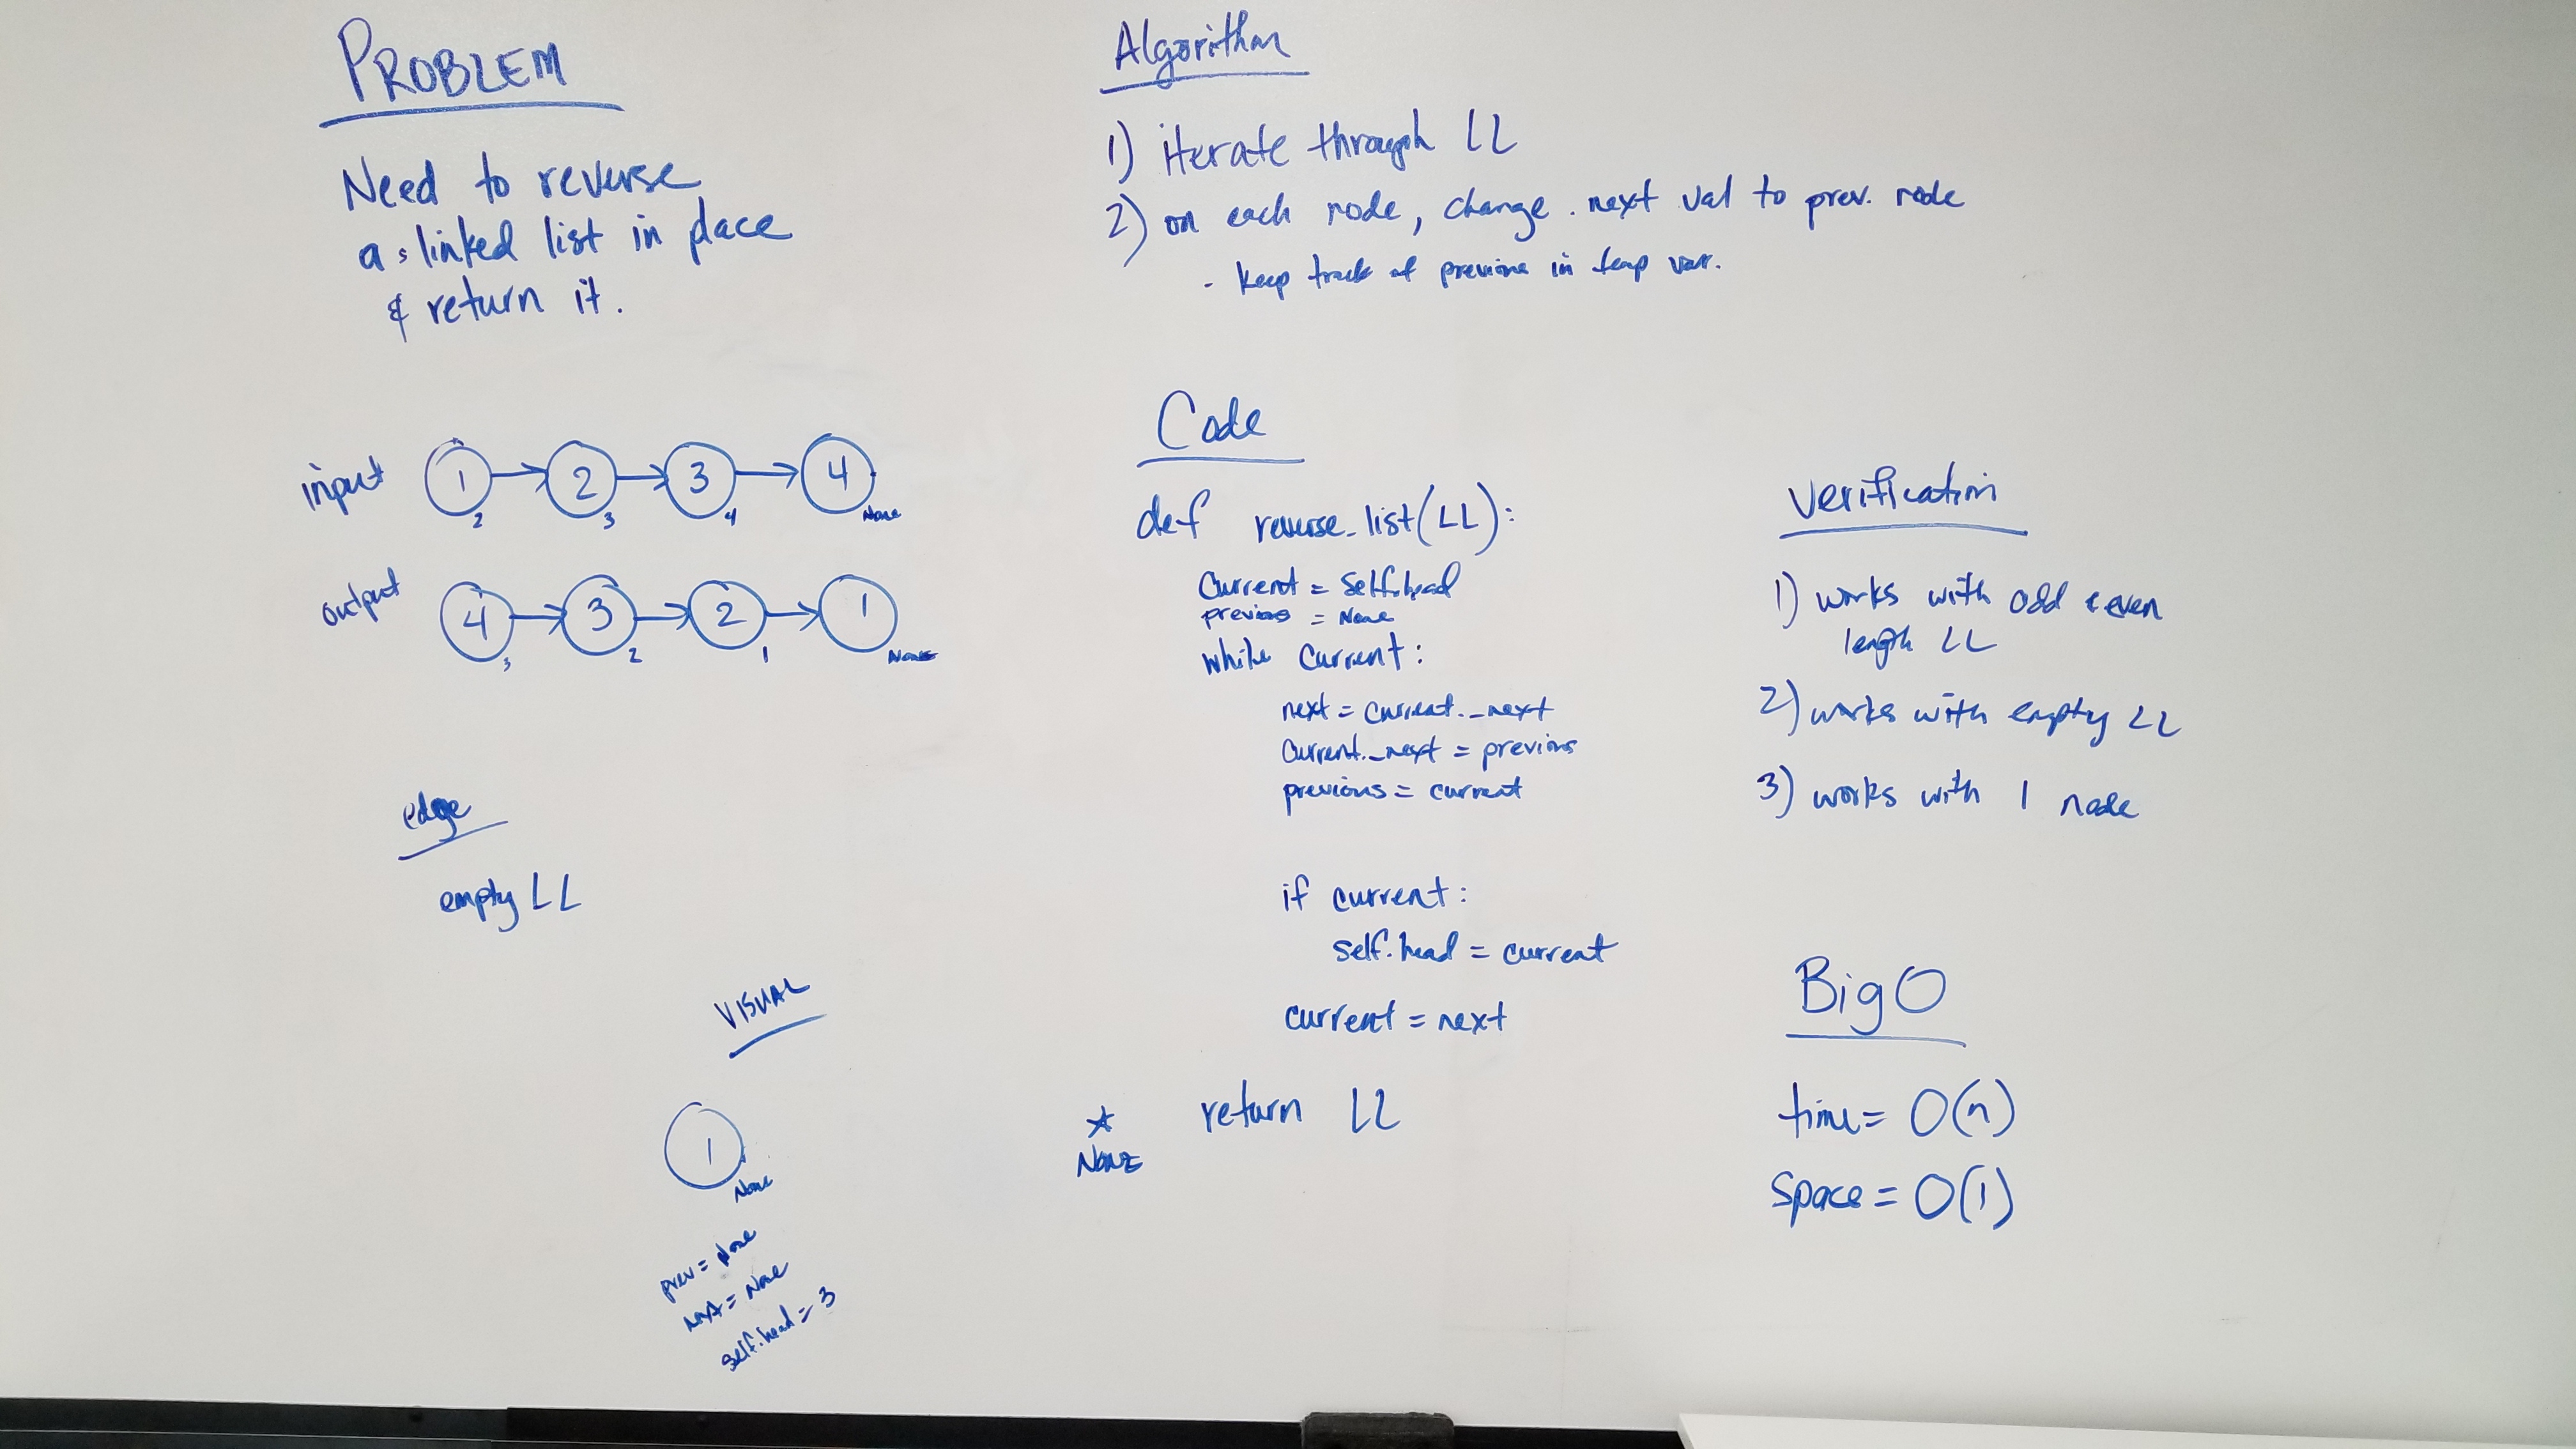 PROBLEM
Need to reverse
a linked list in place
& return it.
input 1 2 3 4
2 3 4 None
output 4 3 2 1
3 2 1 None
edge
empty LL
VISUAL
1
None
prev = None
next = None
self.head = 3
Algorithm
1) iterate through LL
2) on each node, change .next val to prev. node
- keep track of previous in temp var.
Code
def reverse_list(LL):
Current = Self.head
previous = None
while current:
next = current._next
Current._next = previous
previous = current
if current:
self.head = current
current = next
return LL
None
Verification
1) works with odd & even
length LL
2) works with empty LL
3) works with 1 node
Big O
time = O(n)
Space = O(1)